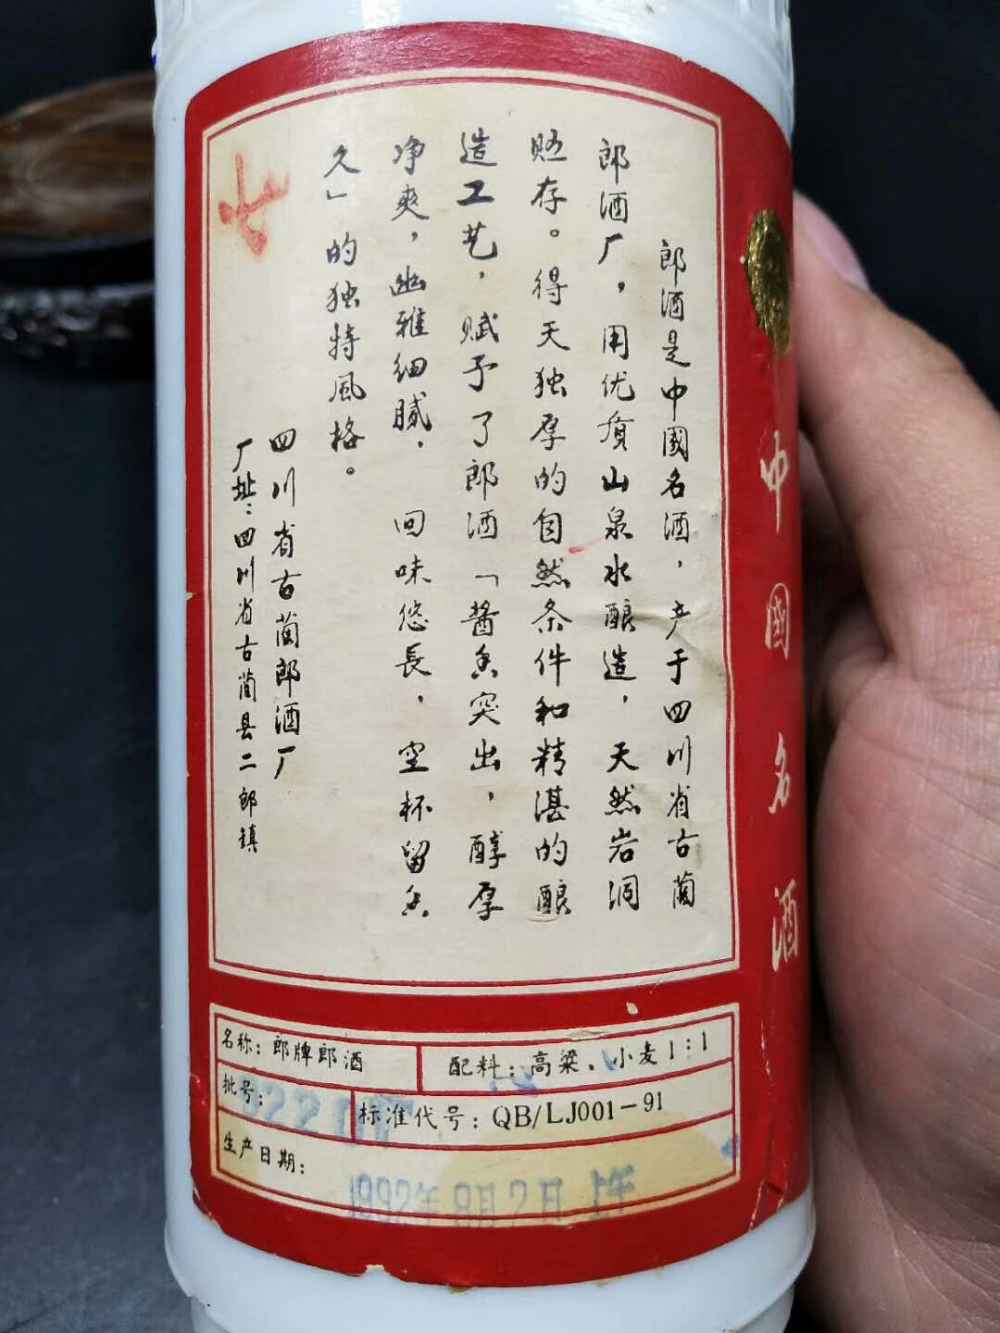 中國名酒
郎酒是中國名酒，产于四川省古蔺
郎酒厂，用优质山泉水酿造，天然岩洞
贮存。得天独厚的自然条件和精湛的酿
造工艺，赋予了郎酒「酱香突出，醇厚
净爽，幽雅细腻，回味悠長，空杯留香
久」的独特風格。
四川省古蔺郎酒厂
厂址：四川省古蔺县二郎镇
七
名称：郎牌郎酒
配料：高粱、小麦1：1
批号：
标准代号：QB/LJ001-91
生产日期：
1992年8月2日 上午